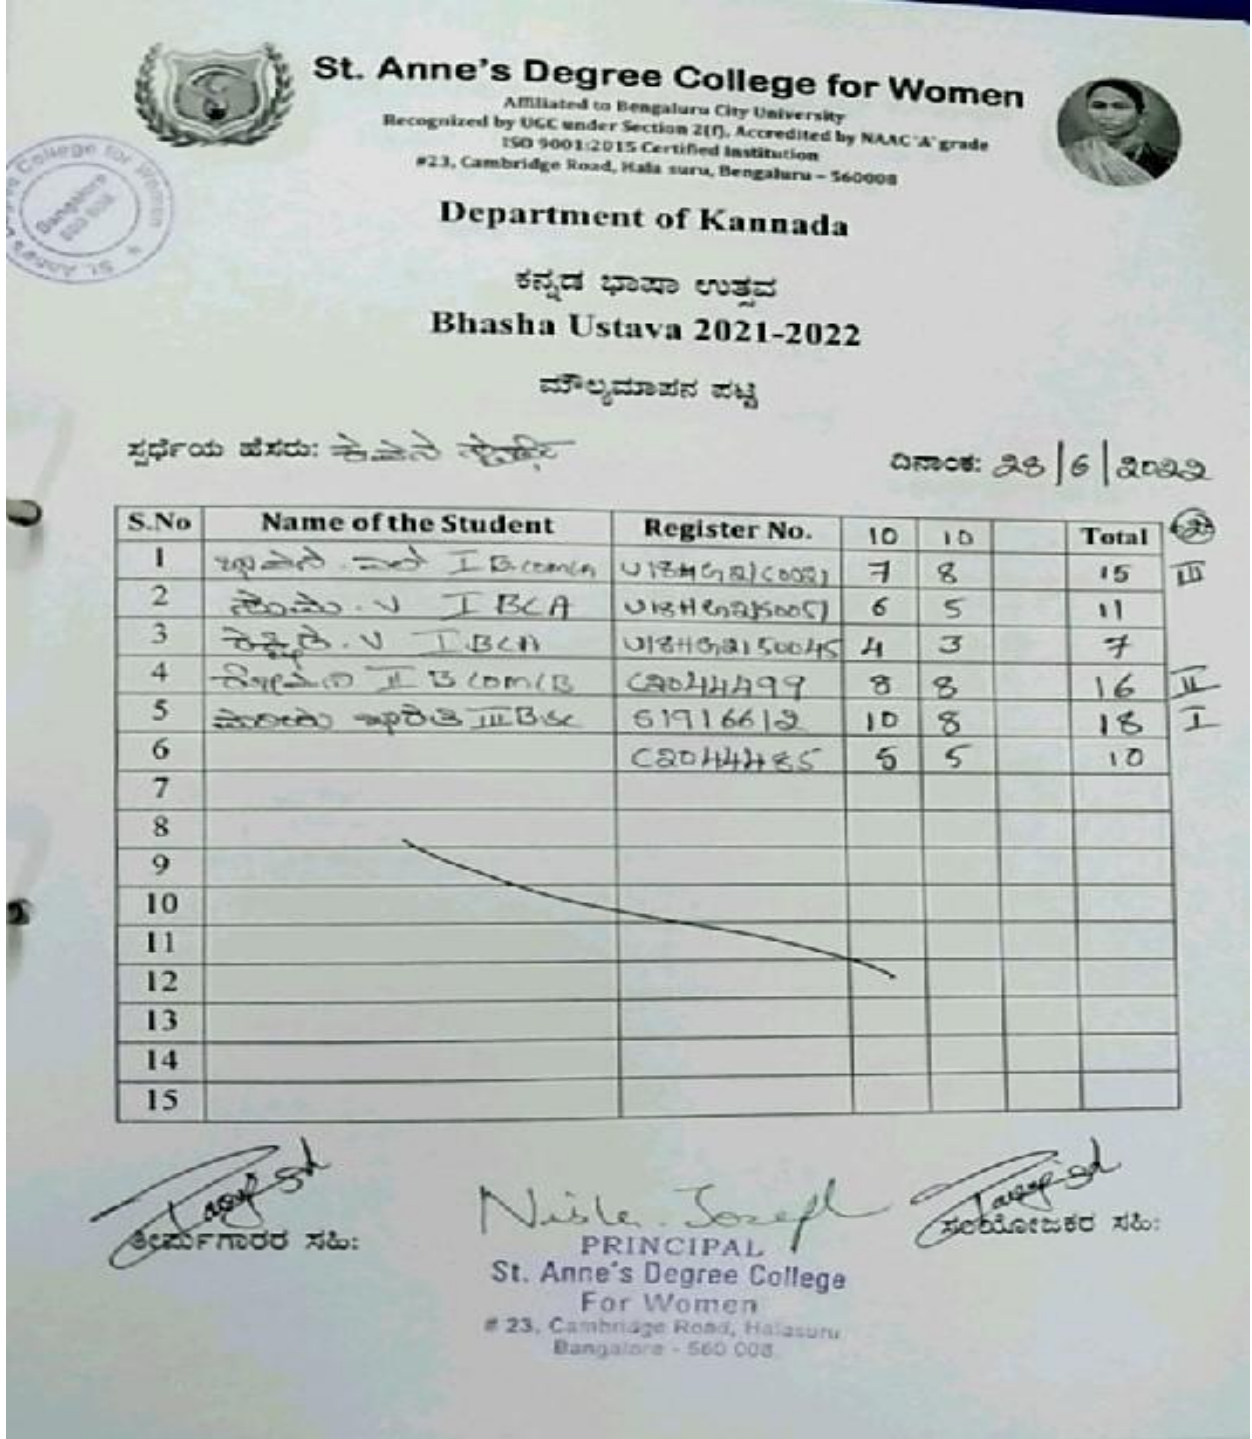 St. Anne's Degree College for Women
Affiliated to Bengaluru City University
Recognized by UGC under Section 2(f), Accredited by NAAC 'A' grade
ISO 9001:2015 Certified Institution
#23, Cambridge Road, Hala suru, Bengaluru – 560008
College for Women
Bangalore
St. Anne's
Department of Kannada
ಕನ್ನಡ ಭಾಷಾ ಉತ್ಸವ
Bhasha Ustava 2021-2022
ಮೌಲ್ಯಮಾಪನ ಪಟ್ಟಿ
ಸ್ಪರ್ಧೆಯ ಹೆಸರು:
ದಿನಾಂಕ: 28/6/2022
S.No Name of the Student Register No. 10 10 Total
1 I B.com 7 8 15 III
2 V I BCA 6 5 11
3 V I BCA U18HG21S0045 4 3 7
4 II B com C2044499 8 8 16 II
5 III B.Sc 10 8 18 I
6 C2044485 5 5 10
7
8
9
10
11
12
13
14
15
ತೀರ್ಪುಗಾರರ ಸಹಿ:
ಸಂಯೋಜಕರ ಸಹಿ:
PRINCIPAL
St. Anne's Degree College
For Women
# 23, Cambridge Road, Halasuru
Bangalore - 560 008.